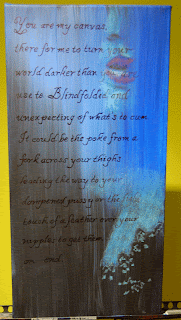 You are my canvas,
there for me to turn your
world darker than you are
use to Blindfolded and
unexpecting of what's to cum
It could be the poke from a
fork across your thighs
leading the way to your
dampened pussy or the
touch of a feather over your
nipples to get them
on end.